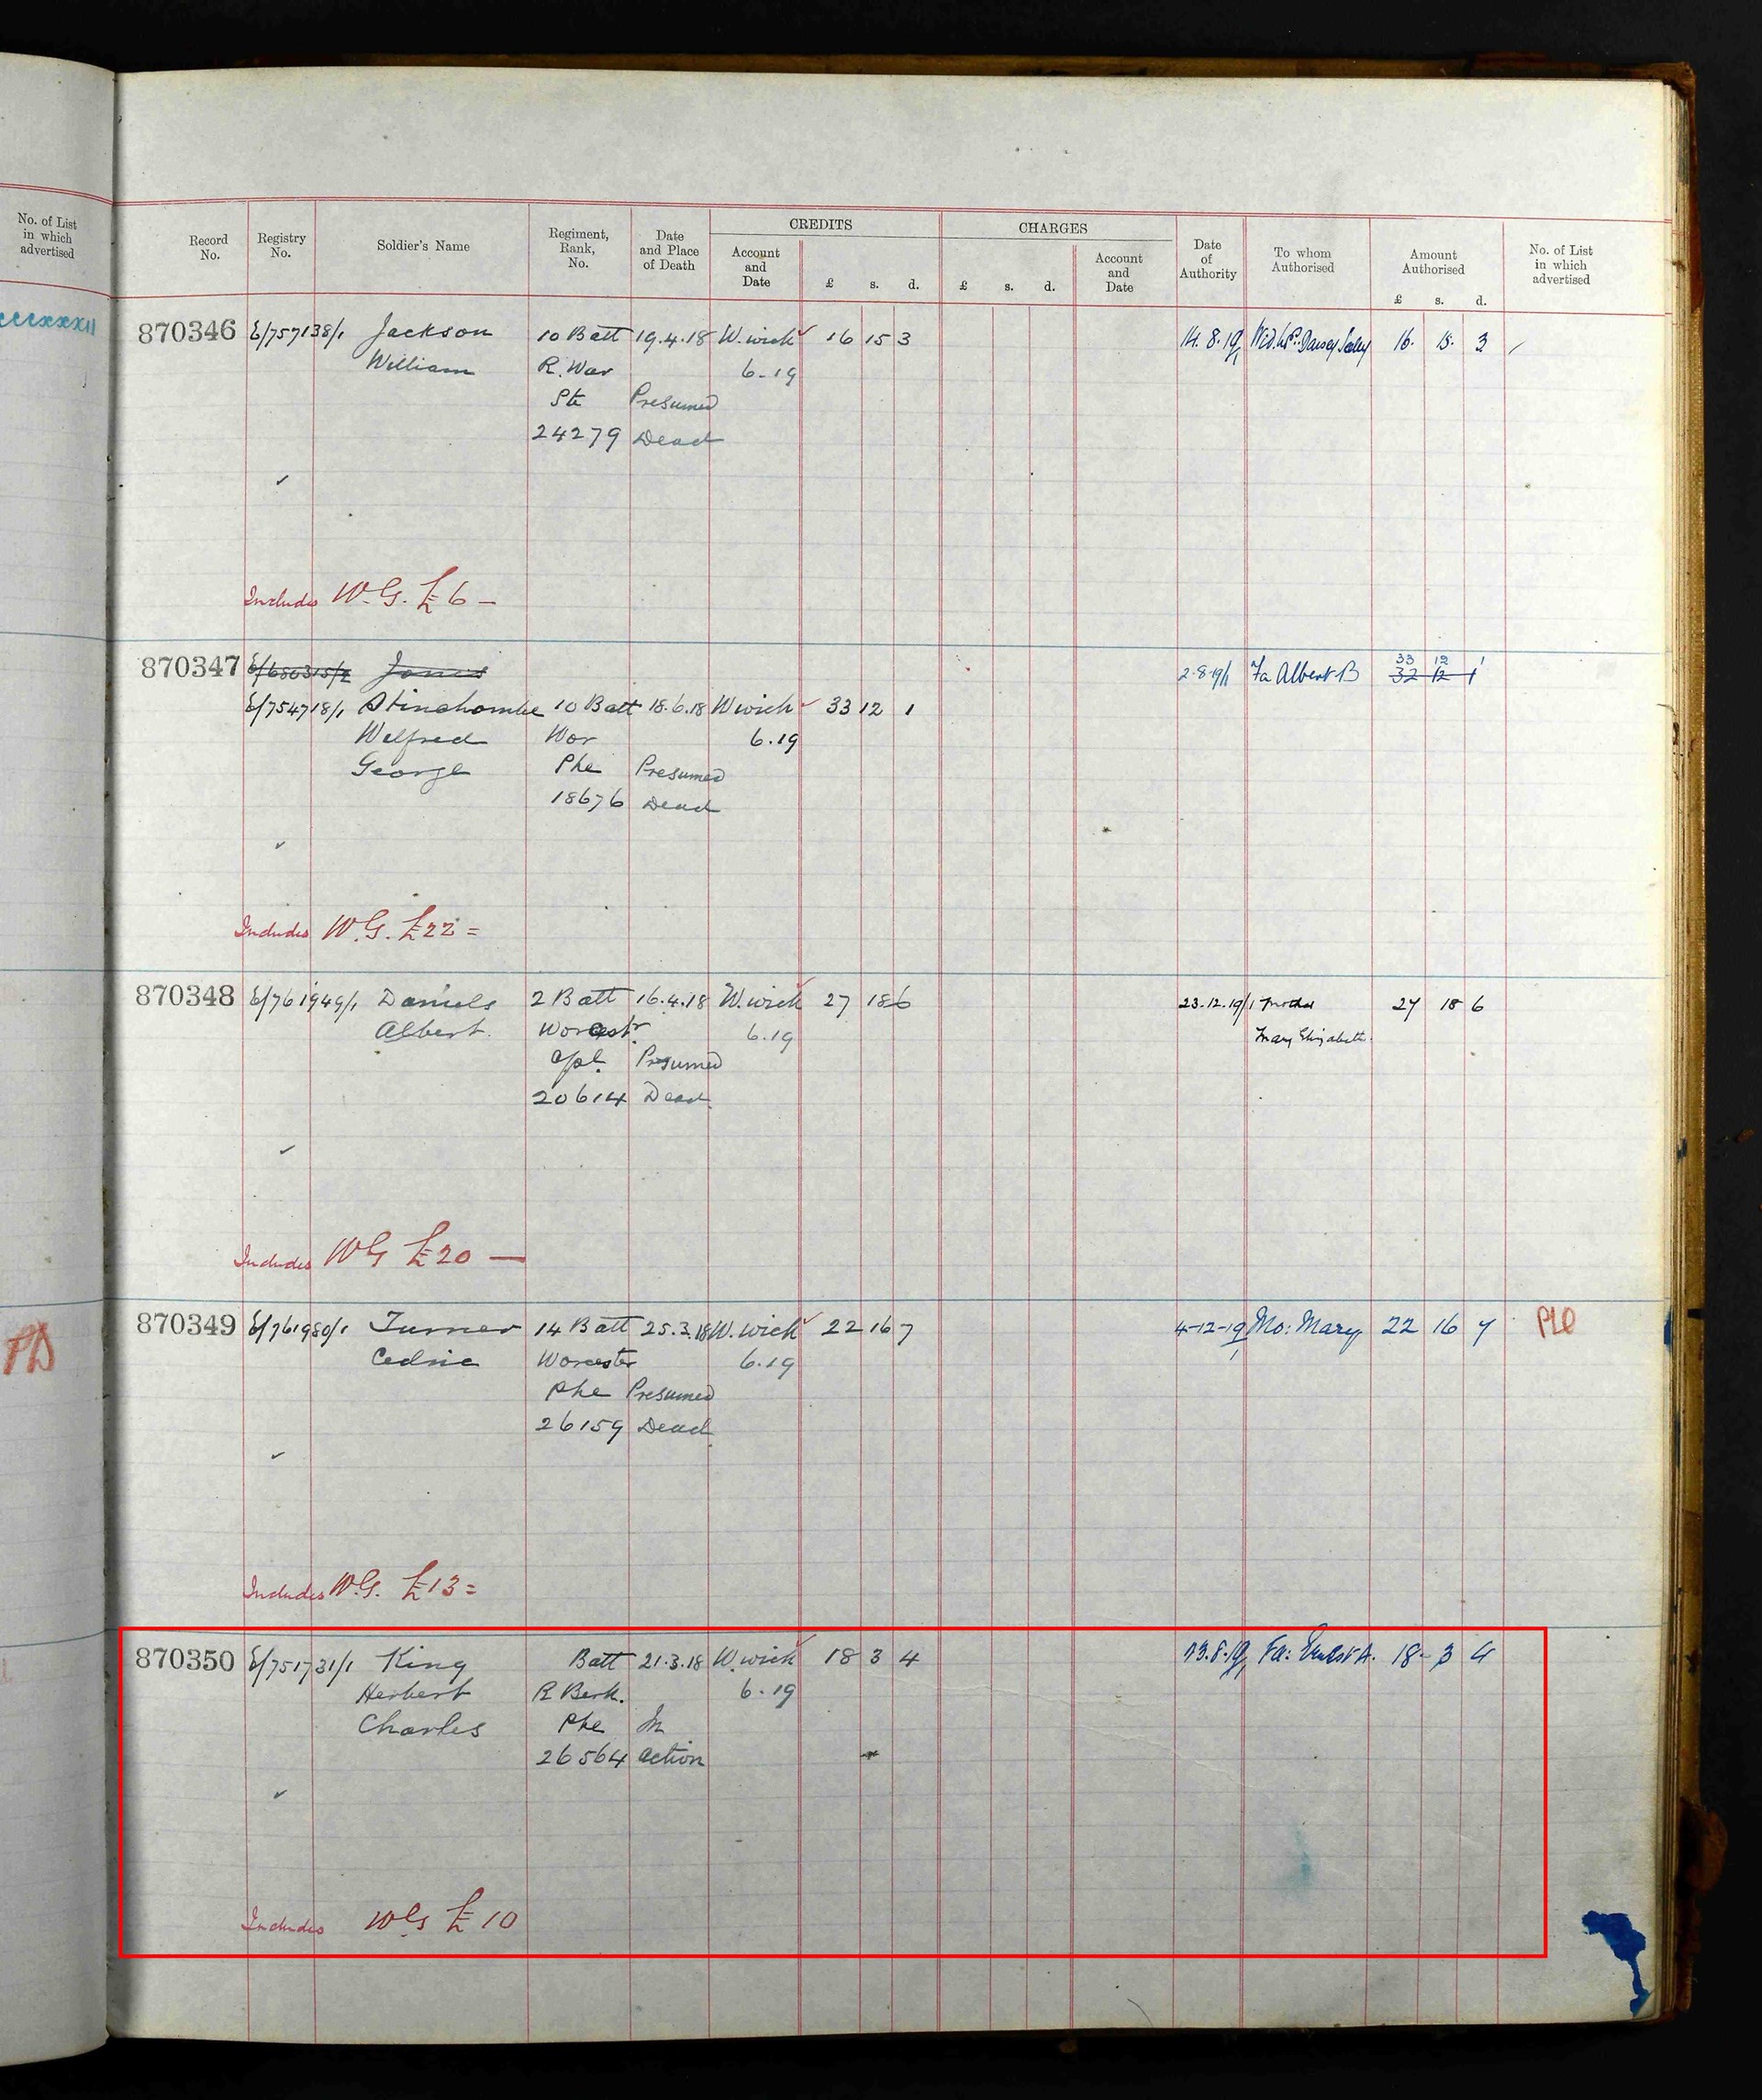 No. of List
in which
advertised
Record
No.
Registry
No.
Soldier's Name
Regiment,
Rank,
No.
Date
and Place
of Death
CREDITS
Account
and
Date
£ s. d.
CHARGES
£ s. d.
Account
and
Date
Date
of
Authority
To whom
Authorised
Amount
Authorised
£ s. d.
No. of List
in which
advertised
870346 E/757138/1 Jackson 10 Batt 19.4.18 W.wick 16 15 3 14.8.19/1 16. 15. 3
William R. War 6-19
Pte Presumed
24279 Dead
Includes W.G. £6 —
870347 E/680315/2 Jones 2.8.19/1 Fa Albert B 33 12 1
32 12 1
E/754718/1 Stinchombe 10 Batt 18.6.18 W wick 33 12 1
Welfred Wor 6.19
George Phe Presumed
18676 Dead
Includes W.G. £22 =
870348 E/761949/1 Daniels 2 Batt 16.4.18 W.wick 27 18 6 23.12.19/1 Mother 27 18 6
Albert. Worcestr 6.19 Mary Elizabeth.
Cpl. Presumed
20614 Dead
Includes WG £20 —
870349 E/761980/1 Turner 14 Batt 25.3.18 W.wick 22 16 7 4-12-19/1 Mo: Mary 22 16 7
Cedric Worcester 6.19
Phe Presumed
26159 Dead
Includes W.G. £13 =
870350 E/751731/1 King Batt 21.3.18 W.wick 18 3 4 13.8.19/1 Fa: Ernest A. 18-3 4
Herbert R Berk. 6-19
Charles Phe In
26564 action
Includes WG £10